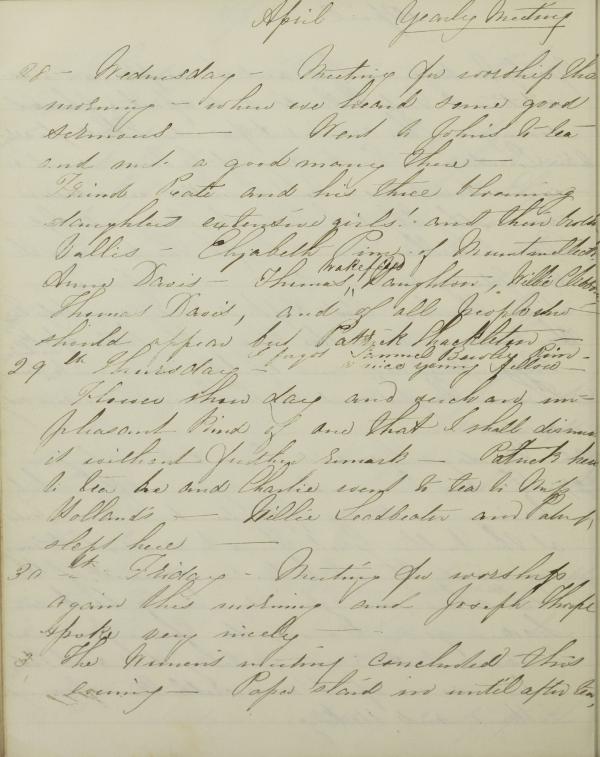 April Yearly Meeting
28 - Wednesday - Meeting for worship this
morning - where we heard some good
sermons — Went to John's to tea
and met a good many there —
Friend Peate and his three blooming
daughters extensive girls! and their brother
Vallis - Elizabeth Pim of Mountmellick,
Anne Davis - Thomas Wakefield Haughton, Willie Clibborn
Thomas Davis, and of all people who
should appear but Patrick Shackleton
I forgot Simmes Pim -
a nice young fellow -
29th Thursday -
Flower show day and such an un=
pleasant kind of one that I shall dismiss
it without further remark - Patrick here
to tea he and Charlie went to tea to Miss
Hollands - Willie Leadbeater and Patrick
slept here —
30th Friday - Meeting for worship
again this morning and Joseph Thorpe
spoke very nicely —
The Women's meeting concluded this
evening - Papa staid in until after tea,